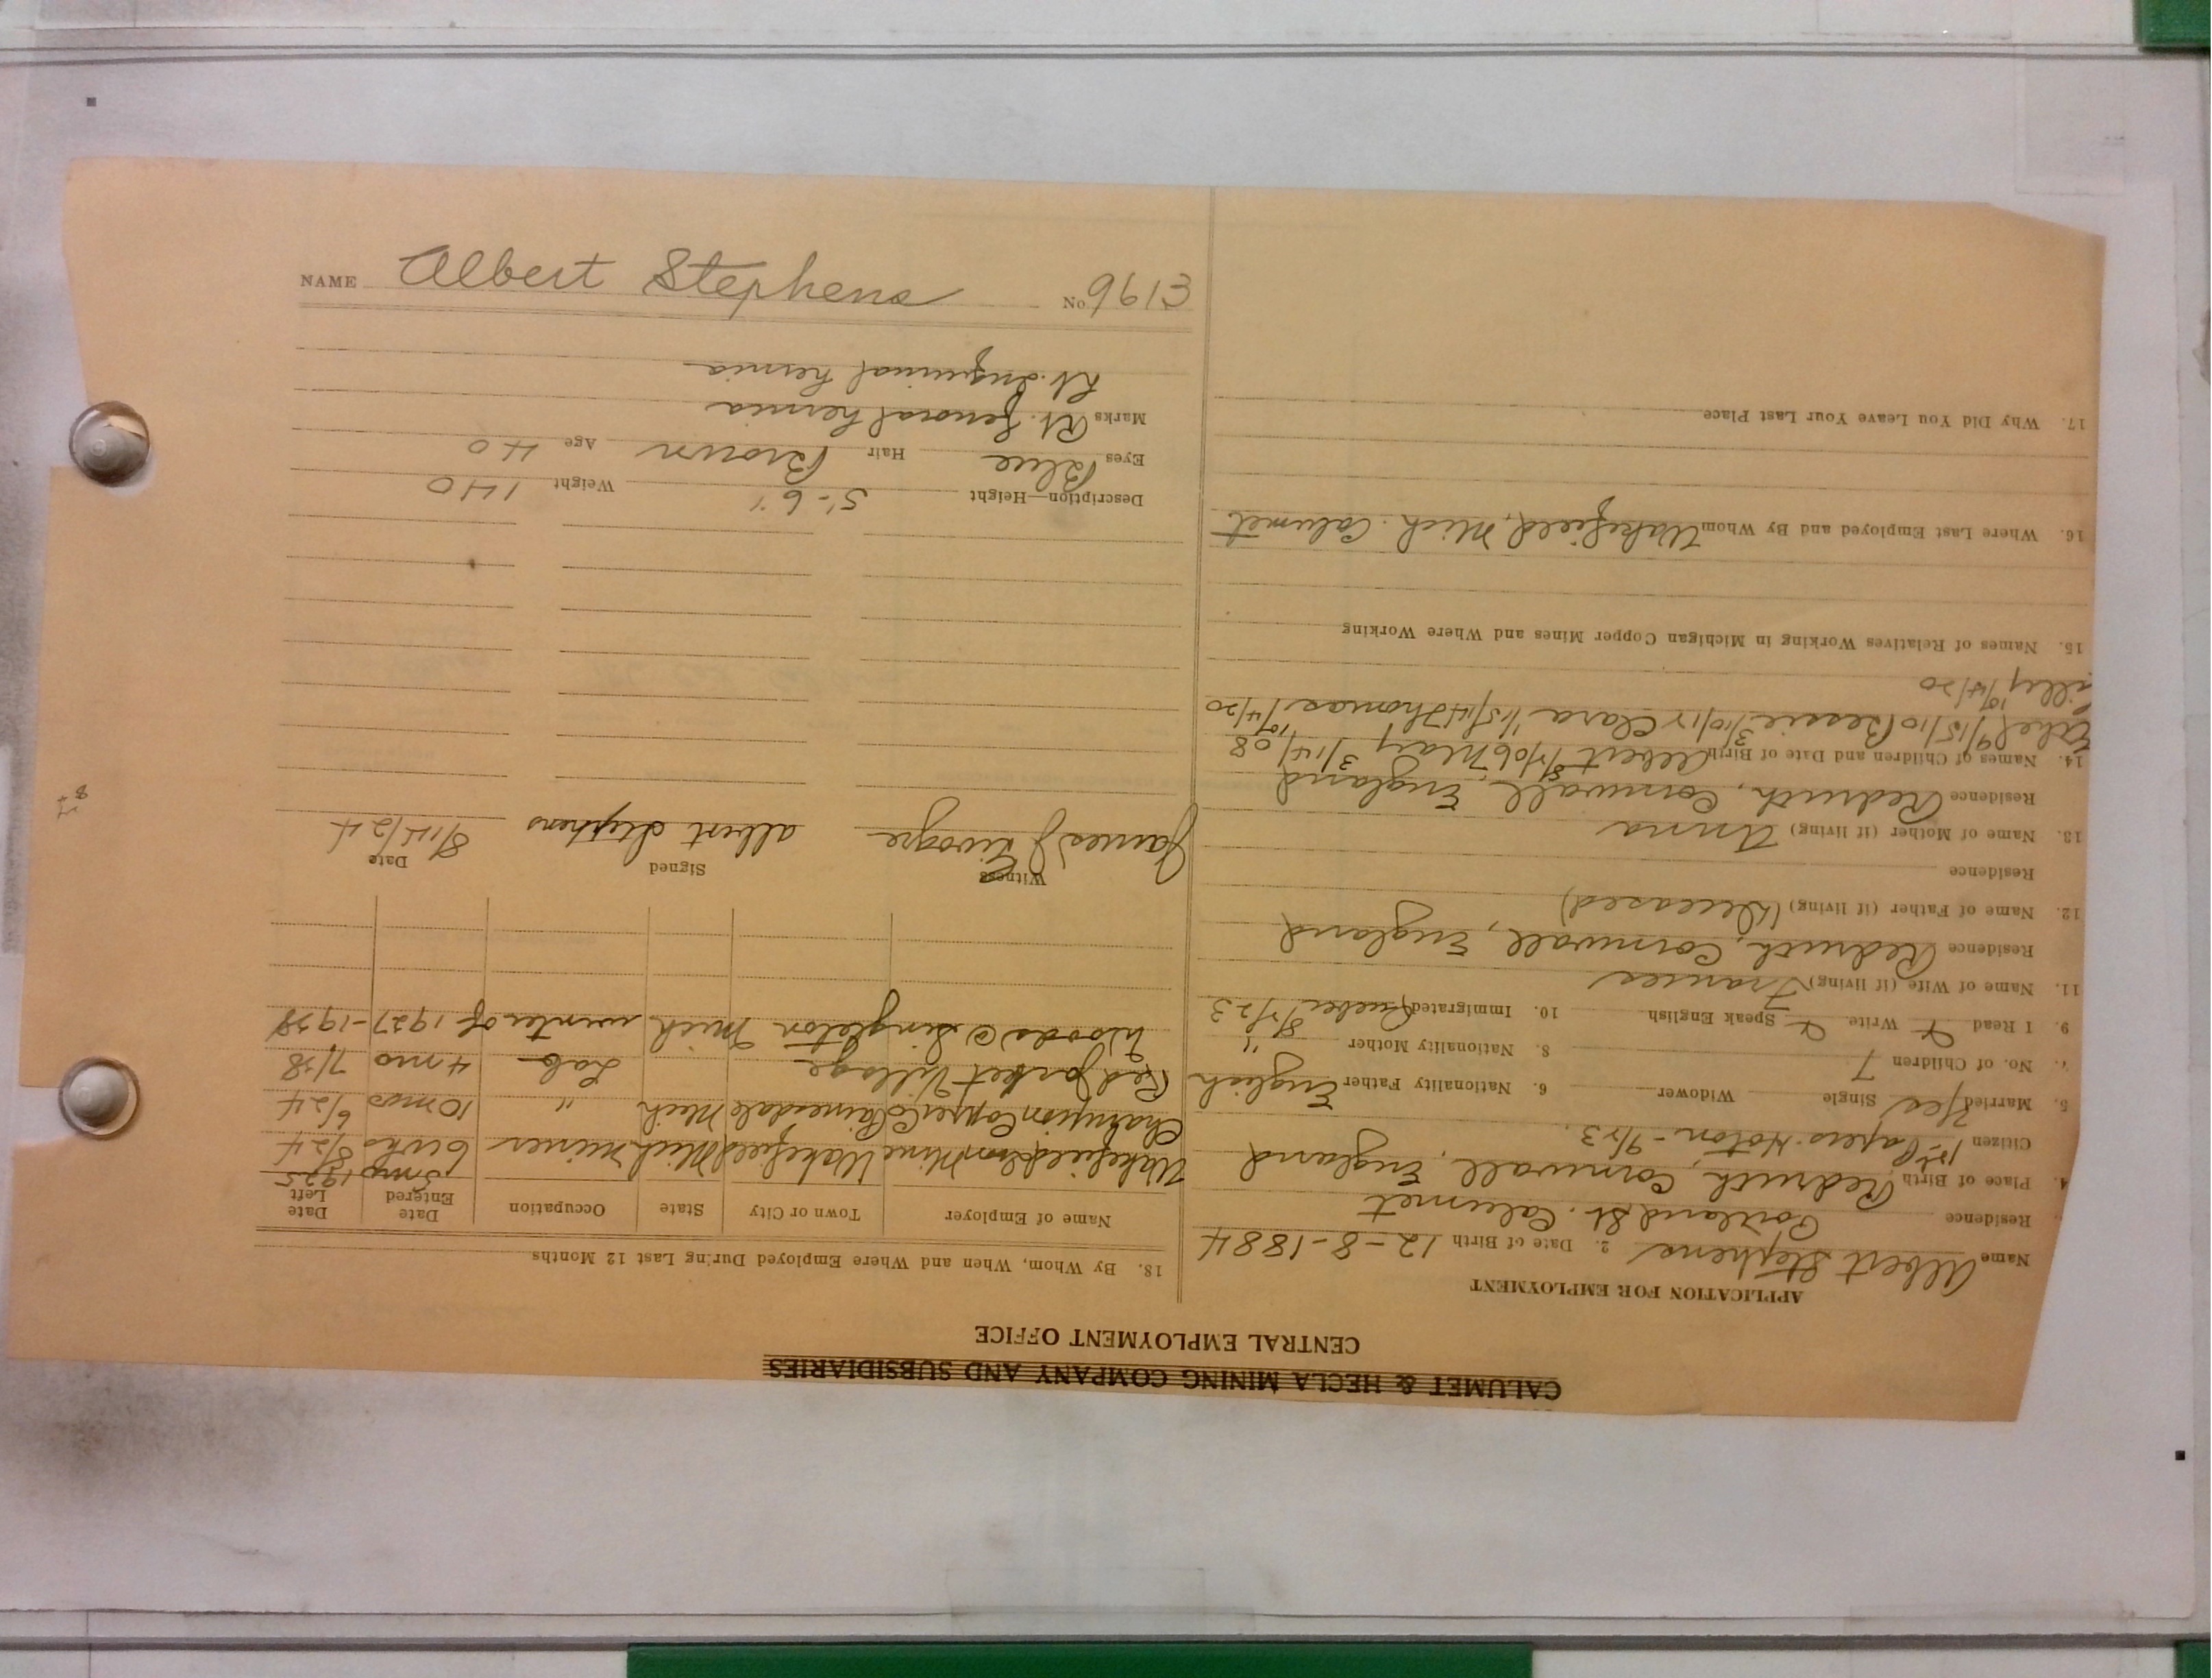 CALUMET & HECLA MINING COMPANY AND SUBSIDIARIES
CENTRAL EMPLOYMENT OFFICE
APPLICATION FOR EMPLOYMENT
Name Albert Stephens 2. Date of Birth 12-8-1884
Residence Portland St. Calumet
4. Place of Birth Redruth, Cornwall, England
Citizen 1st Papers Hoton - 9/23.
5. Married Yes Single Widower 6. Nationality Father English
7. No. of Children 7 8. Nationality Mother "
9. I Read Write. Speak English 10. Immigrated Quebec 8/1/23
11. Name of Wife (if living) Frances
Residence Redruth, Cornwall, England
12. Name of Father (if living) (Deceased)
Residence
13. Name of Mother (if living) Anna
Residence Redruth, Cornwall, England
14. Names of Children and Date of Birth Albert 8/1/06 May 3/14/08
Ethel 9/15/10 Bessie 3/10/12 Clara 1/15/14 Thomas 10/4/20
Lilly 10/4/20
15. Names of Relatives Working in Michigan Copper Mines and Where Working
16. Where Last Employed and By Whom Wakefield, Mich. Calumet
17. Why Did You Leave Your Last Place
18. By Whom, When and Where Employed During Last 12 Months
Name of Employer Town or City State Occupation Date Entered Date Left
3 mo 1925
Wakefield Iron Mine Wakefield Mich Miner 6 wks 8/24
Champion Copper Co Painesdale Mich " 10 mos 6/24
Red Jacket Village Lab 4 mo 7/28
Woods @ Singleton Mich winter of 1927-1928
Witness Signed Date
James J albert Stephens 8/14/24
Description—Height 5'-6" Weight 140
Eyes Blue Hair Brown Age 40
Marks Rt. femoral hernia
Rt. Inguinal hernia
NAME Albert Stephens No. 9613